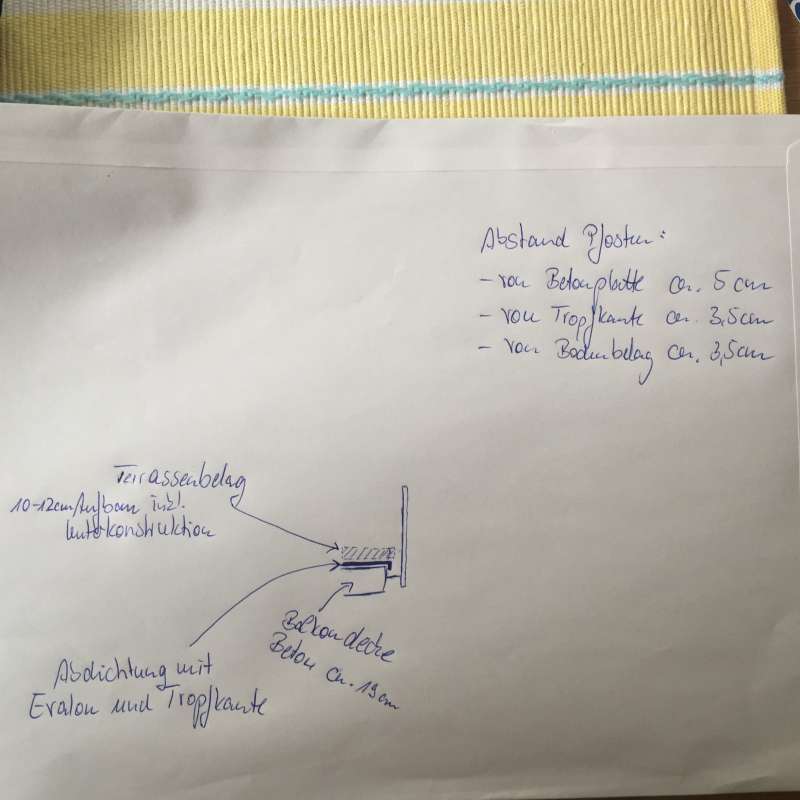 Abstand Pfosten:
- von Betonplatte ca. 5 cm
- von Tropfkante ca. 3,5cm
- von Bodenbelag ca. 3,5cm
Terrassenbelag
10-12cm Aufbau inkl.
Unterkonstruktion
Balkondecke
Beton ca. 19cm
Abdichtung mit
Evalon und Tropfkante